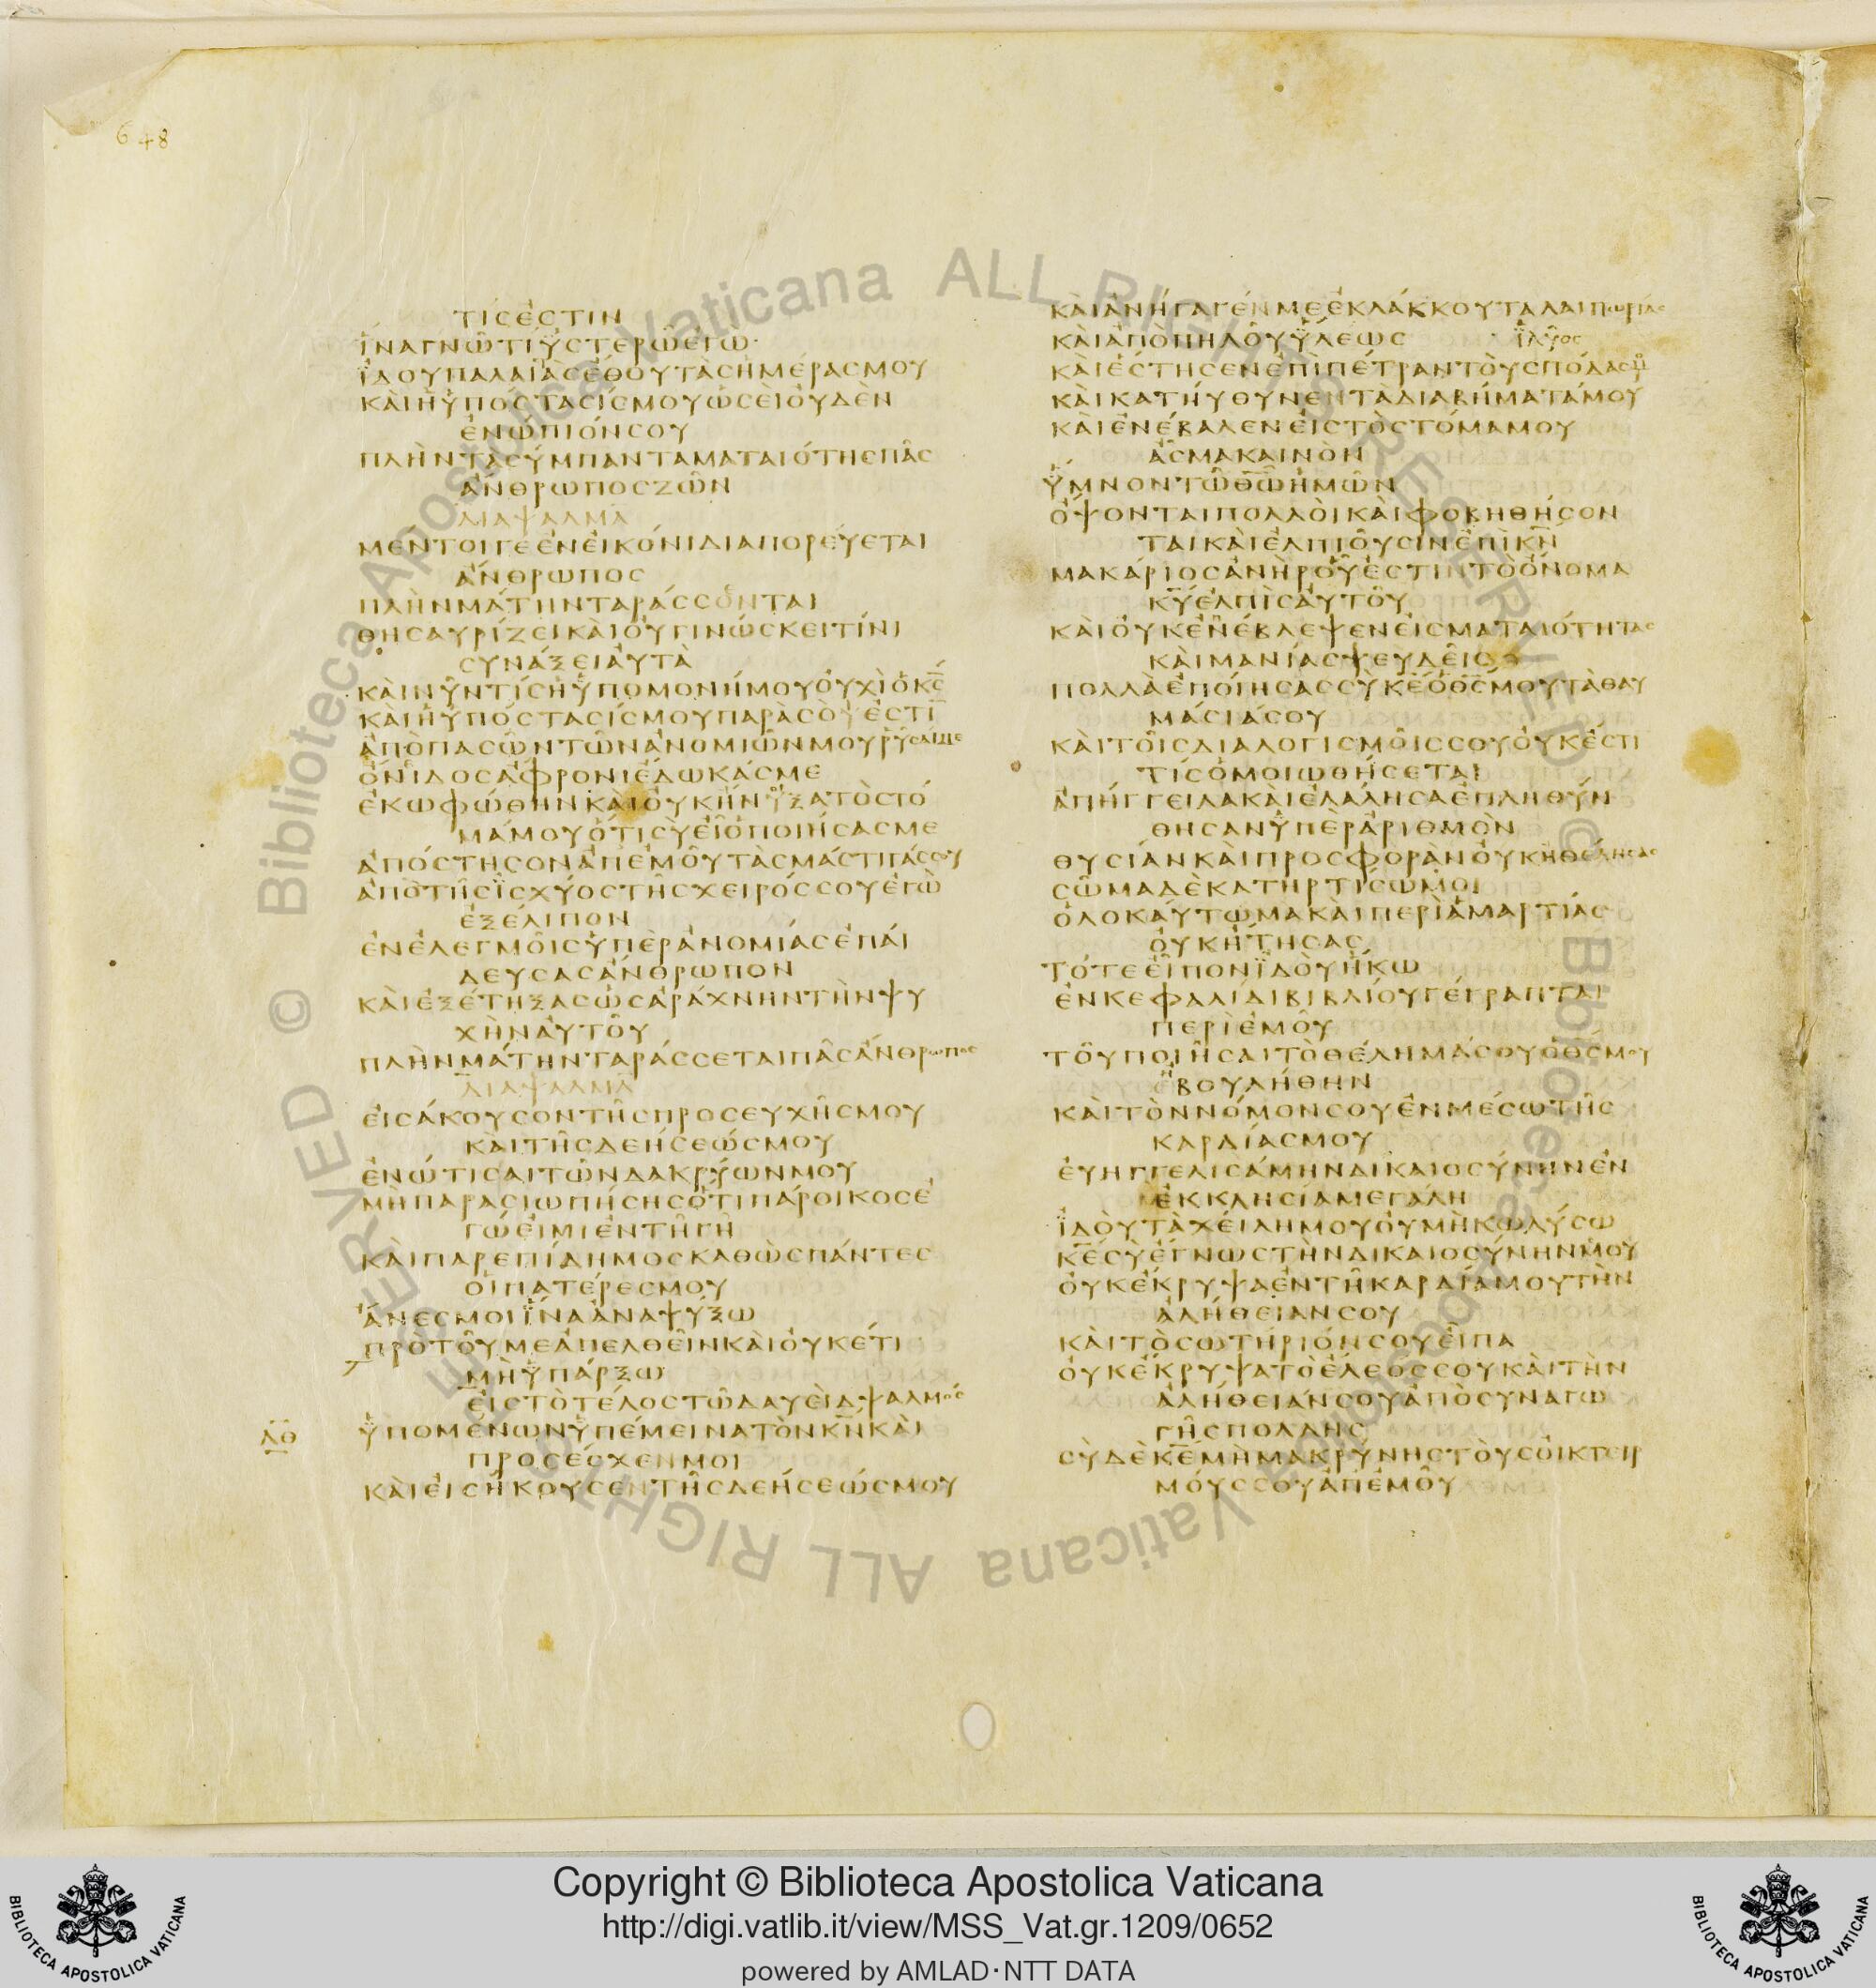 648
ΤΙΣ ΕΣΤΙΝ
ΙΝΑ ΓΝΩ ΤΙ ΥΣΤΕΡΩ ΕΓΩ·
ΙΔΟΥ ΠΑΛΑΙΑΣ ΕΘΟΥ ΤΑΣ ΗΜΕΡΑΣ ΜΟΥ
ΚΑΙ Η ΥΠΟΣΤΑΣΙΣ ΜΟΥ ΩΣΕΙ ΟΥΔΕΝ
ΕΝΩΠΙΟΝ ΣΟΥ
ΠΛΗΝ ΤΑ ΣΥΜΠΑΝΤΑ ΜΑΤΑΙΟΤΗΣ ΠΑΣ
ΑΝΘΡΩΠΟΣ ΖΩΝ
ΔΙΑΨΑΛΜΑ
ΜΕΝΤΟΙΓΕ ΕΝ ΕΙΚΟΝΙ ΔΙΑΠΟΡΕΥΕΤΑΙ
ΑΝΘΡΩΠΟΣ
ΠΛΗΝ ΜΑΤΗΝ ΤΑΡΑΣΣΟΝΤΑΙ
ΘΗΣΑΥΡΙΖΕΙ ΚΑΙ ΟΥ ΓΙΝΩΣΚΕΙ ΤΙΝΙ
ΣΥΝΑΞΕΙ ΑΥΤΑ
ΚΑΙ ΝΥΝ ΤΙΣ Η ΥΠΟΜΟΝΗ ΜΟΥ ΟΥΧΙ Ο ΚΣ
ΚΑΙ Η ΥΠΟΣΤΑΣΙΣ ΜΟΥ ΠΑΡΑ ΣΟΥ ΕΣΤΙ
ΑΠΟ ΠΑΣΩΝ ΤΩΝ ΑΝΟΜΙΩΝ ΜΟΥ ΡΥΣΑΙ ΜΕ
ΟΝΙΔΟΣ ΑΦΡΟΝΙ ΕΔΩΚΑΣ ΜΕ
ΕΚΩΦΩΘΗΝ ΚΑΙ ΟΥΚ ΗΝΥΞΑ ΤΟ ΣΤΟ
ΜΑ ΜΟΥ ΟΤΙ ΣΥ ΕΙ Ο ΠΟΙΗΣΑΣ ΜΕ
ΑΠΟΣΤΗΣΟΝ ΑΠ ΕΜΟΥ ΤΑΣ ΜΑΣΤΙΓΑΣ ΣΟΥ
ΑΠΟ ΤΗΣ ΙΣΧΥΟΣ ΤΗΣ ΧΕΙΡΟΣ ΣΟΥ ΕΓΩ
ΕΞΕΛΙΠΟΝ
ΕΝ ΕΛΕΓΜΟΙΣ ΥΠΕΡ ΑΝΟΜΙΑΣ ΕΠΑΙ
ΔΕΥΣΑΣ ΑΝΘΡΩΠΟΝ
ΚΑΙ ΕΞΕΤΗΞΑΣ ΩΣ ΑΡΑΧΝΗΝ ΤΗΝ ΨΥ
ΧΗΝ ΑΥΤΟΥ
ΠΛΗΝ ΜΑΤΗΝ ΤΑΡΑΣΣΕΤΑΙ ΠΑΣ ΑΝΘΡΩΠΟΣ
ΔΙΑΨΑΛΜΑ
ΕΙΣΑΚΟΥΣΟΝ ΤΗΣ ΠΡΟΣΕΥΧΗΣ ΜΟΥ
ΚΑΙ ΤΗΣ ΔΕΗΣΕΩΣ ΜΟΥ
ΕΝΩΤΙΣΑΙ ΤΩΝ ΔΑΚΡΥΩΝ ΜΟΥ
ΜΗ ΠΑΡΑΣΙΩΠΗΣΗΣ ΟΤΙ ΠΑΡΟΙΚΟΣ Ε
ΓΩ ΕΙΜΙ ΕΝ ΤΗ ΓΗ
ΚΑΙ ΠΑΡΕΠΙΔΗΜΟΣ ΚΑΘΩΣ ΠΑΝΤΕΣ
ΟΙ ΠΑΤΕΡΕΣ ΜΟΥ
ΑΝΕΣ ΜΟΙ ΙΝΑ ΑΝΑΨΥΞΩ
ΠΡΟ ΤΟΥ ΜΕ ΑΠΕΛΘΕΙΝ ΚΑΙ ΟΥΚΕΤΙ
ΜΗ ΥΠΑΡΞΩ
ΕΙΣ ΤΟ ΤΕΛΟΣ ΤΩ ΔΑΥΕΙΔ ΨΑΛΜΟΣ
ΛΘ ΥΠΟΜΕΝΩΝ ΥΠΕΜΕΙΝΑ ΤΟΝ ΚΝ ΚΑΙ
ΠΡΟΣΕΣΧΕΝ ΜΟΙ
ΚΑΙ ΕΙΣΗΚΟΥΣΕΝ ΤΗΣ ΔΕΗΣΕΩΣ ΜΟΥ
ΚΑΙ ΑΝΗΓΑΓΕΝ ΜΕ ΕΚ ΛΑΚΚΟΥ ΤΑΛΑΙΠΩΡΙΑΣ
ΚΑΙ ΑΠΟ ΠΗΛΟΥ ΥΛΕΩΣ ιλυος
ΚΑΙ ΕΣΤΗΣΕΝ ΕΠΙ ΠΕΤΡΑΝ ΤΟΥΣ ΠΟΔΑΣ ΜΟΥ
ΚΑΙ ΚΑΤΗΥΘΥΝΕΝ ΤΑ ΔΙΑΒΗΜΑΤΑ ΜΟΥ
ΚΑΙ ΕΝΕΒΑΛΕΝ ΕΙΣ ΤΟ ΣΤΟΜΑ ΜΟΥ
ΑΣΜΑ ΚΑΙΝΟΝ
ΥΜΝΟΝ ΤΩ ΘΩ ΗΜΩΝ
ΟΨΟΝΤΑΙ ΠΟΛΛΟΙ ΚΑΙ ΦΟΒΗΘΗΣΟΝ
ΤΑΙ ΚΑΙ ΕΛΠΙΟΥΣΙΝ ΕΠΙ ΚΝ
ΜΑΚΑΡΙΟΣ ΑΝΗΡ ΟΥ ΕΣΤΙΝ ΤΟ ΟΝΟΜΑ
ΚΥ ΕΛΠΙΣ ΑΥΤΟΥ
ΚΑΙ ΟΥΚ ΕΝΕΒΛΕΨΕΝ ΕΙΣ ΜΑΤΑΙΟΤΗΤΑΣ
ΚΑΙ ΜΑΝΙΑΣ ΨΕΥΔΕΙΣ
ΠΟΛΛΑ ΕΠΟΙΗΣΑΣ ΣΥ ΚΕ Ο ΘΣ ΜΟΥ ΤΑ ΘΑΥ
ΜΑΣΙΑ ΣΟΥ
ΚΑΙ ΤΟΙΣ ΔΙΑΛΟΓΙΣΜΟΙΣ ΣΟΥ ΟΥΚ ΕΣΤΙ
ΤΙΣ ΟΜΟΙΩΘΗΣΕΤΑΙ
ΑΠΗΓΓΕΙΛΑ ΚΑΙ ΕΛΑΛΗΣΑ ΕΠΛΗΘΥΝ
ΘΗΣΑΝ ΥΠΕΡ ΑΡΙΘΜΟΝ
ΘΥΣΙΑΝ ΚΑΙ ΠΡΟΣΦΟΡΑΝ ΟΥΚ ΗΘΕΛΗΣΑΣ
ΣΩΜΑ ΔΕ ΚΑΤΗΡΤΙΣΩ ΜΟΙ
ΟΛΟΚΑΥΤΩΜΑ ΚΑΙ ΠΕΡΙ ΑΜΑΡΤΙΑΣ
ΟΥΚ ΗΤΗΣΑΣ
ΤΟΤΕ ΕΙΠΟΝ ΙΔΟΥ ΗΚΩ
ΕΝ ΚΕΦΑΛΙΔΙ ΒΙΒΛΙΟΥ ΓΕΓΡΑΠΤΑΙ
ΠΕΡΙ ΕΜΟΥ
ΤΟΥ ΠΟΙΗΣΑΙ ΤΟ ΘΕΛΗΜΑ ΣΟΥ Ο ΘΣ ΜΟΥ
ΕΒΟΥΛΗΘΗΝ
ΚΑΙ ΤΟΝ ΝΟΜΟΝ ΣΟΥ ΕΝ ΜΕΣΩ ΤΗΣ
ΚΑΡΔΙΑΣ ΜΟΥ
ΕΥΗΓΓΕΛΙΣΑΜΗΝ ΔΙΚΑΙΟΣΥΝΗΝ ΕΝ
ΕΚΚΛΗΣΙΑ ΜΕΓΑΛΗ
ΙΔΟΥ ΤΑ ΧΕΙΛΗ ΜΟΥ ΟΥ ΜΗ ΚΩΛΥΣΩ
ΚΕ ΣΥ ΕΓΝΩΣ ΤΗΝ ΔΙΚΑΙΟΣΥΝΗΝ ΜΟΥ
ΟΥΚ ΕΚΡΥΨΑ ΕΝ ΤΗ ΚΑΡΔΙΑ ΜΟΥ ΤΗΝ
ΑΛΗΘΕΙΑΝ ΣΟΥ
ΚΑΙ ΤΟ ΣΩΤΗΡΙΟΝ ΣΟΥ ΕΙΠΑ
ΟΥΚ ΕΚΡΥΨΑ ΤΟ ΕΛΕΟΣ ΣΟΥ ΚΑΙ ΤΗΝ
ΑΛΗΘΕΙΑΝ ΣΟΥ ΑΠΟ ΣΥΝΑΓΩ
ΓΗΣ ΠΟΛΛΗΣ
ΣΥ ΔΕ ΚΕ ΜΗ ΜΑΚΡΥΝΗΣ ΤΟΥΣ ΟΙΚΤΕΙΡ
ΜΟΥΣ ΣΟΥ ΑΠ ΕΜΟΥ
© Biblioteca Apostolica Vaticana ALL RIGHTS RESERVED
© Biblioteca Apostolica Vaticana ALL RIGHTS RESERVED
Copyright © Biblioteca Apostolica Vaticana
http://digi.vatlib.it/view/MSS_Vat.gr.1209/0652
powered by AMLAD·NTT DATA
BIBLIOTECA APOSTOLICA VATICANA
BIBLIOTECA APOSTOLICA VATICANA